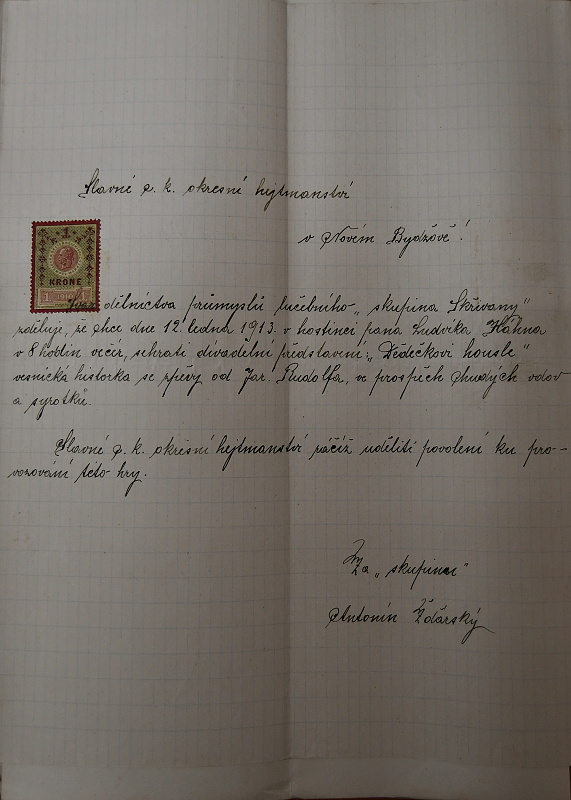 Slavné c. k. okresní hejtmanství
v Novém Bydžově!
1
KRONE
Svaz dělnictva průmyslu lučebního „skupina Skřivany"
zděluje, že chce dne 12. ledna 1913. v hostinci pana Ludvíka Hahna
v 8 hodin večer, sehrati divadelní představení „Dědečkovi housle"
vesnická historka se zpěvy od Jar. Rudolfa, ve prospěch chudých vdov
a syrotků.
Slavné c. k. okresní hejtmanství ráčíž uděliti povolení ku pro-
vozování této hry.
Za „skupinu"
Antonín Žďárský